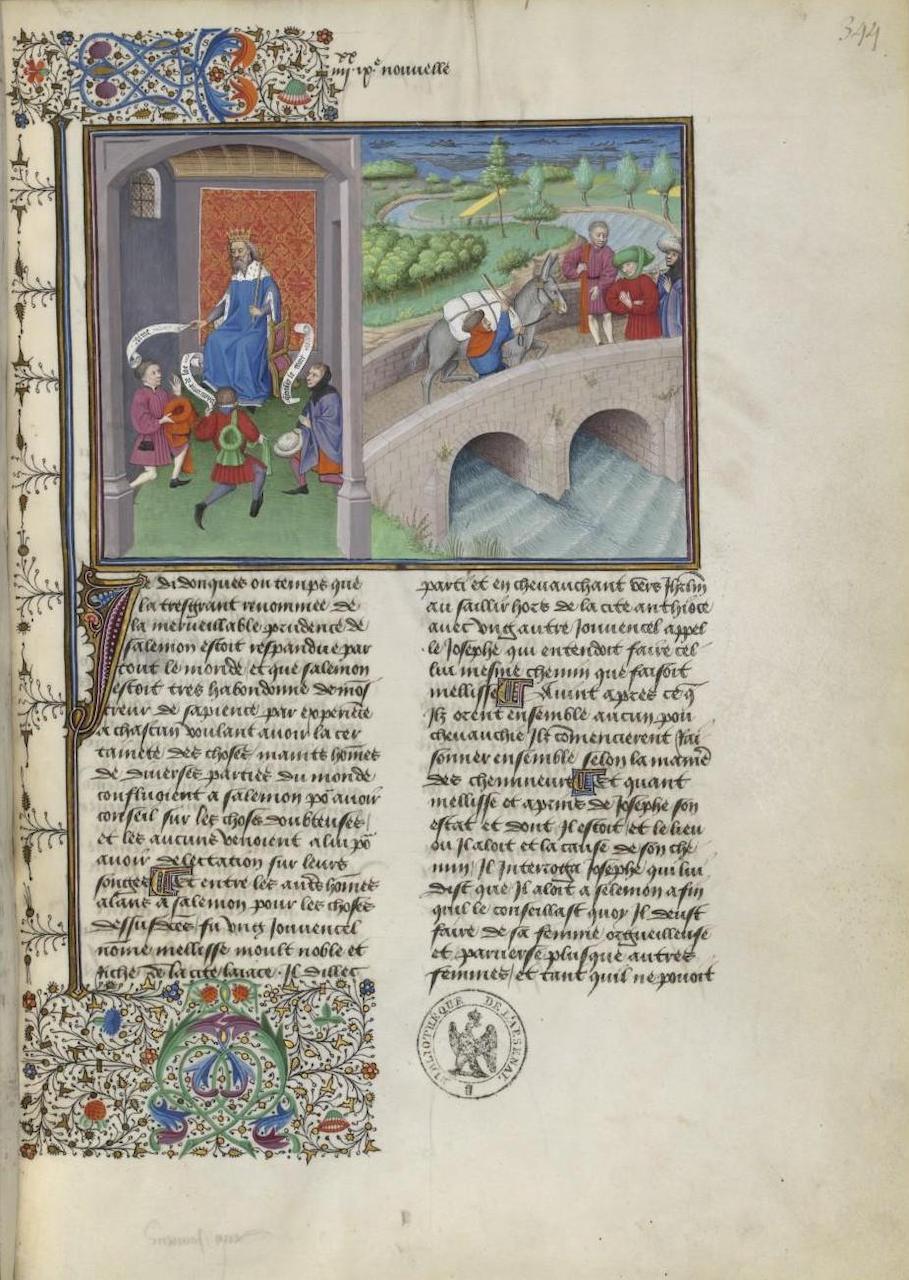 344
iiii xx ix.e nouuelle
Je di donques ou temps que
la tresgrant renommee de
la merueillable prudence de
salemon estoit respandue par
tout le monde et que salemon
estoit tres habondonne demos
treur de sapience par experiẽce
a chascun voulant auoir la cer
tainete des choses maints hõmes
de diuerses parties du monde
confluoient a salemon põ auoir
conseil sur les choses doubteuses
et les aucuns venoient a lui põ
auoir delectation sur leurs
songes Et entre les autr̃s hõmes
alans a salemon pour les choses
dessusdictes fu vng Jouuencel
nõme mellisse moult noble et
riche de la cite laiace . Il dillec
parti et en cheuauchant vers Jhrlm̃
au saillir hors de la cite anthioce
auec vng autre Jouuencel appel
le Josephe qui entendoit faire cel
lui mesme chemin que faisoit
mellisse Auint apres ce q̃
Ilz orent ensemble aucun pou
cheuauchie Ilz comencierent Rai
sonner ensemble selon la maniẽ
des chemineurs Et quant
mellisse et aprins de Josephe son
estat et dont Il estoit et le lieu
ou Il aloit et la cause de son che
min / Il Interroga Josephe qui lui
dist que Il aloit a selemon afin
quil le conseillast quoy Il deust
faire de sa femme orgueilleuse
et peruerse plus que autres
femmes / et tant quil ne pouoit
BIBLIOTHÈQUE DE L'ARSENAL